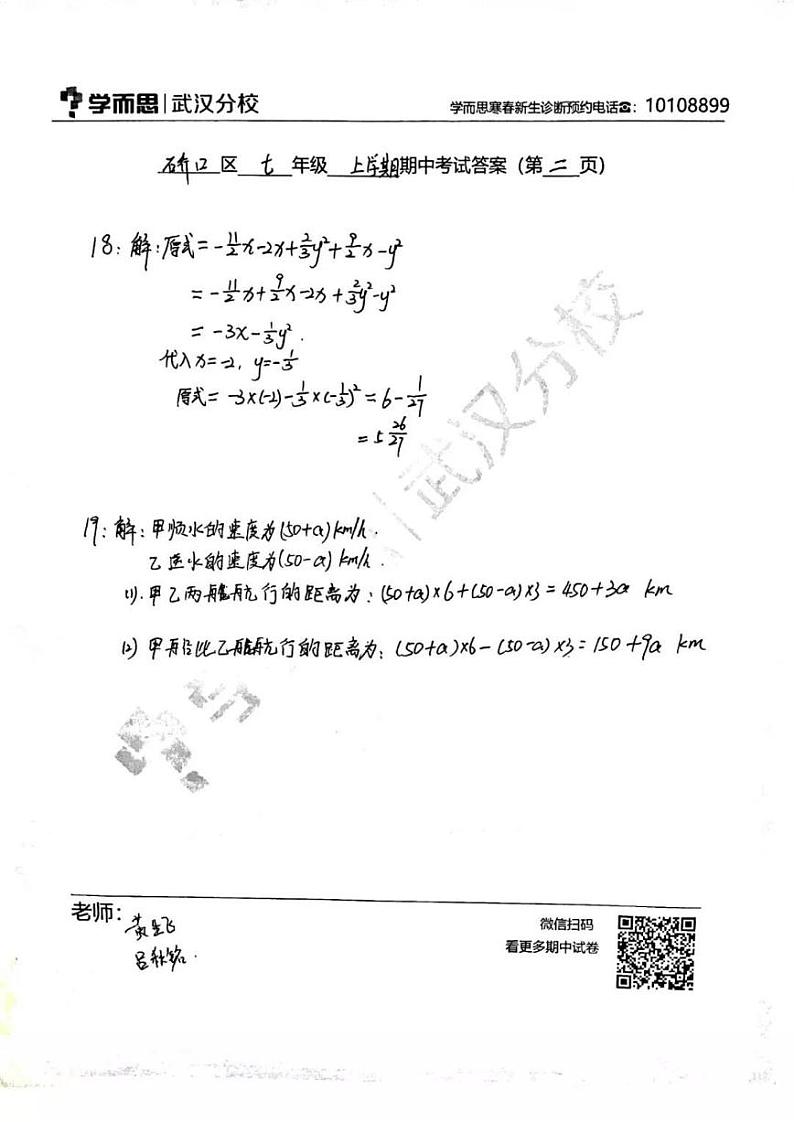 学而思 | 武汉分校 学而思寒春新生诊断预约电话☎: 10108899
硚口 区 七 年级 上学期 期中考试答案 (第 二 页)
18: 解: 原式 = -11/2x-2x+2/3y²+9/2x-y²
= -11/2x+9/2x-2x+2/3y²-y²
= -3x-1/3y².
代入x=-2, y=-1/3
原式= -3×(-2)-1/3×(-1/3)²=6-1/27
=5 26/27
19: 解: 甲顺水的速度为(50+a)km/h.
乙逆水的速度为(50-a)km/h.
(1). 甲乙两船航行的距离为: (50+a)×6+(50-a)×3=450+3a km
(2) 甲船比乙船航行的距离为: (50+a)×6-(50-a)×3=150+9a km
学而思 | 武汉分校
老师:
吕秋铭.
微信扫码
看更多期中试卷